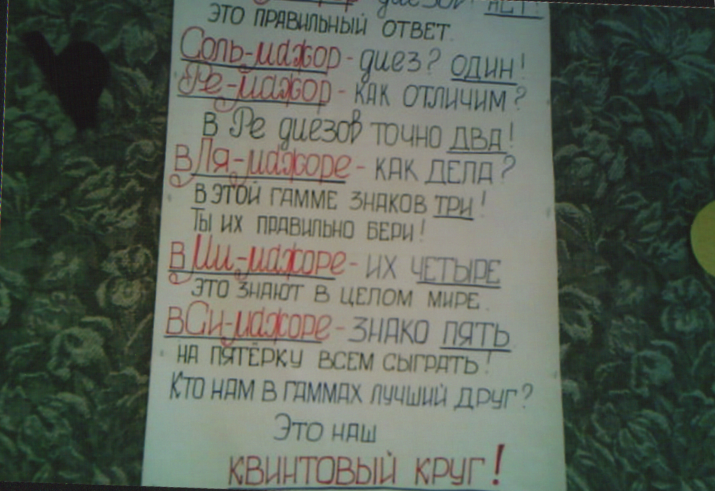 диезов? НЕТ!
ЭТО ПРАВИЛЬНЫЙ ОТВЕТ.
Соль-мажор - диез? ОДИН!
Ре-мажор - КАК ОТЛИЧИМ?
В Ре диезов ТОЧНО ДВА!
В Ля-мажоре - КАК ДЕЛА?
В ЭТОЙ ГАММЕ ЗНАКОВ ТРИ!
ТЫ ИХ ПРАВИЛЬНО БЕРИ!
В Ми-мажоре - ИХ ЧЕТЫРЕ
ЭТО ЗНАЮТ В ЦЕЛОМ МИРЕ.
В Си-мажоре - ЗНАКО ПЯТЬ
НА ПЯТЁРКУ ВСЕМ СЫГРАТЬ!
КТО НАМ В ГАММАХ ЛУЧШИЙ ДРУГ?
ЭТО НАШ
КВИНТОВЫЙ КРУГ!